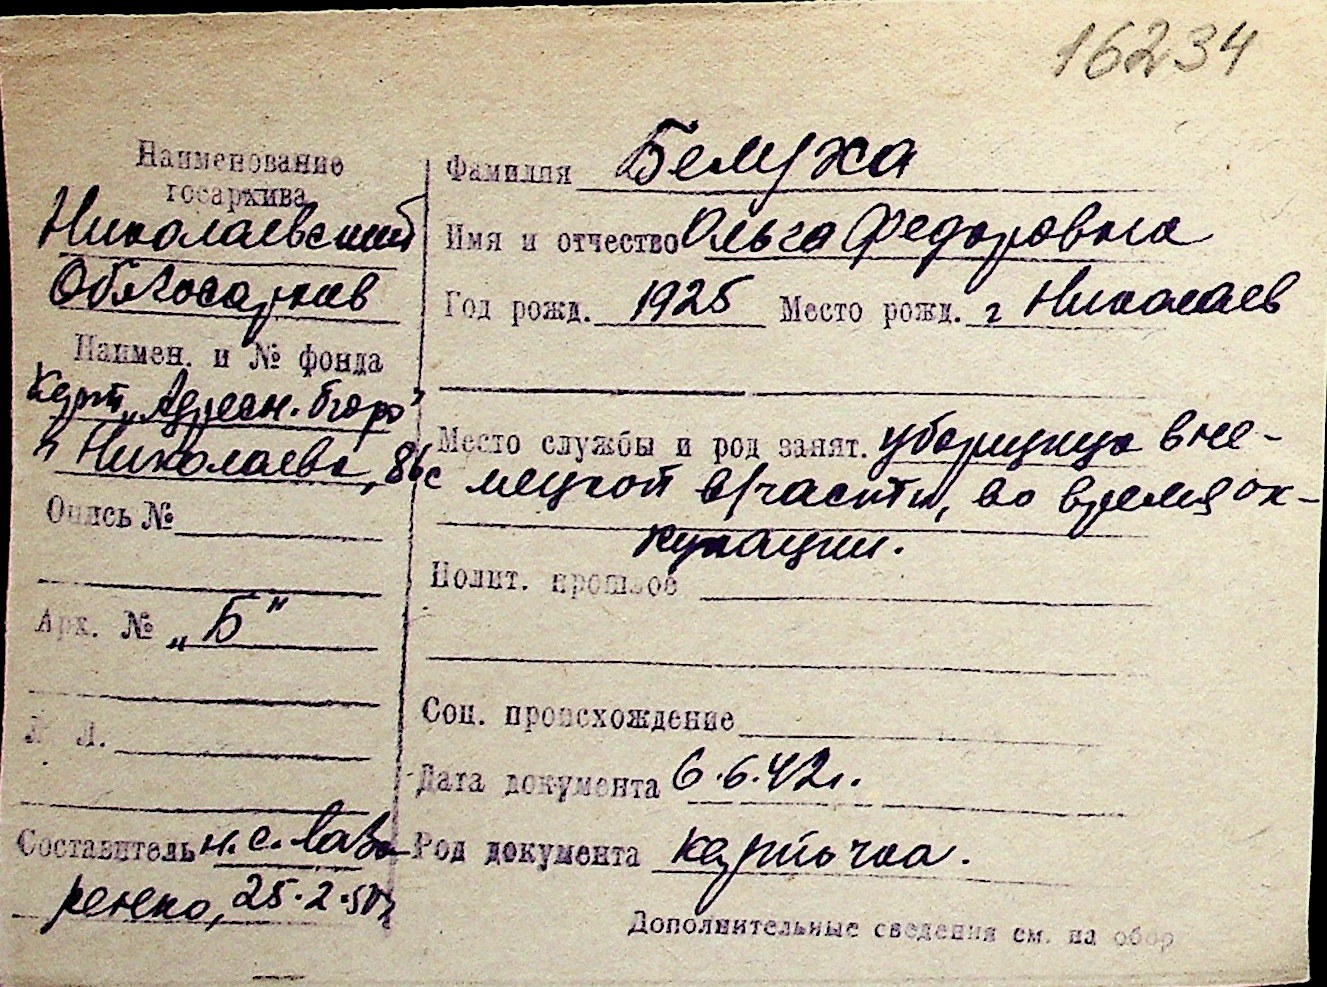 16234
Наименование
госархива
Николаевский
Облгосархив
Наимен. и № фонда
Карт. „Адресн. бюро"
г. Николаева, 86с
Опись №
Арх. № „Б"
Л Л.
Составитель н.с. Лав
ренко, 25.2.50г
Фамилия Белуха
Имя и отчество Ольга Федоровна
Год рожд. 1925 Место рожд. г Николаев
Место службы и род занят. уборщица в не-
мецкой в/части, во время ок-
купации.
Полит. прошлое
Соц. происхождение
Дата документа 6.6.42г.
Род документа карточка.
Дополнительные сведения см. на обор